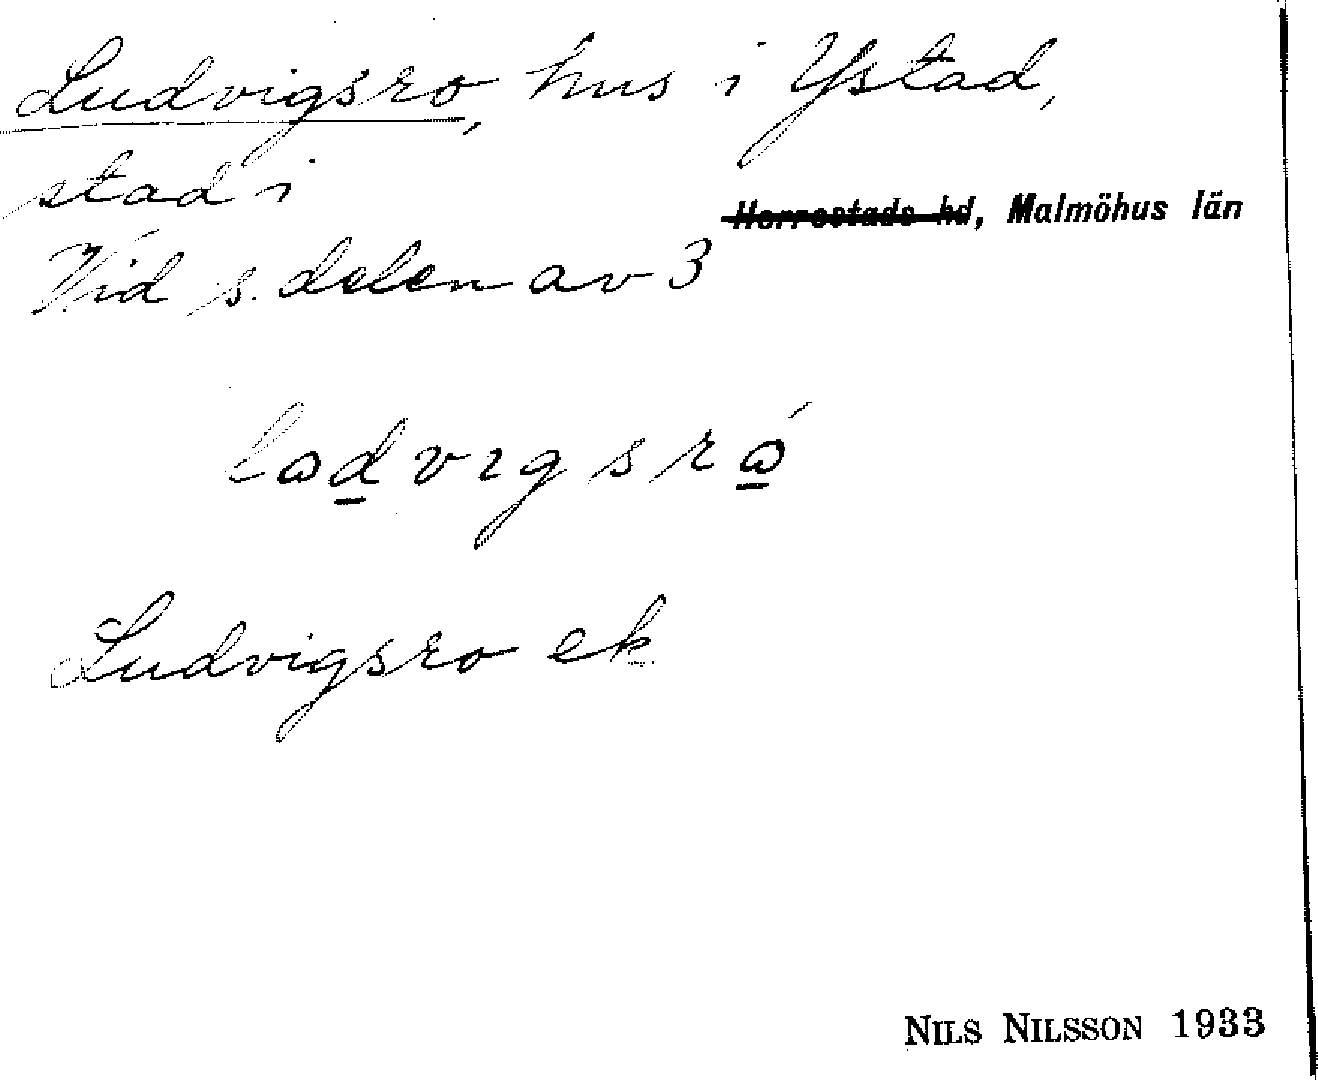 Ludvigsro, hus i Ystad,
stad i
Herrestads hd, Malmöhus län
Vid s. delen av 3
Ludvigsro ek.
NILS NILSSON 1933